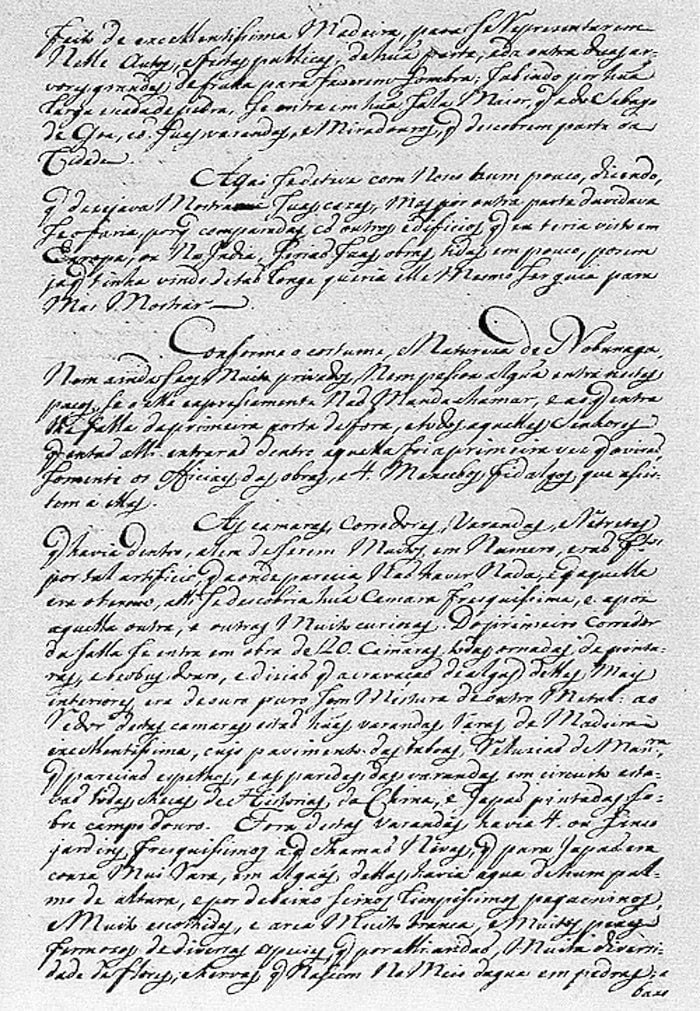 feito de excellentissima Madeira, para se representarem
Nelle Autos, e festas publicas, de huã parte, e da outra duas ar-
vores grandes de fruita para fazerem sombra; Subindo por huã
larga escada de pedra, se entra em huã Salla Maior, q̃ a do Sabayo
de Goa, cõ suas varandas, e Miradouros, q̃ descobrem parte da
Cidade.
Aqui se deteve com Nosco hum pouco, dizendo,
q̃ desejava Mostrar suas cazas, Mas por outra parte duvidava
se o faria, porq̃ comparadas cõ outros edificios q̃ eu teria visto em
Europa, ou Na India, seriaõ suas obras tidas em pouco, porem
ja q̃ tinha vindo de taõ longe queria elle Mesmo ser guia para
Mas Mostrar.
Conforme o costume, e Natureza de Nobunaga,
Nem ainda seos Muito privados, Nem pesoa algũa entra nestes
paços, se o elle expresamente Naõ Manda chamar, e aos q̃ entra
falla da primeira porta de fora, e todos aquelles Senhores
q̃ entaõ alli entraraõ dentro aquella foi a primeira vez q̃ o viraõ,
somente os officiaes das obras, e 4. Mancebos fidalgos, que asis-
tem a ellas.
As camaras, Corredores, Varandas, e Retretes
q̃ havia dentro, alem de serem Muitos em Numero, eraõ ftos
por tal artificio, q̃ a onde parecia Naõ haver Nada, e q̃ aquella
era o termo, alli se descobria huã Camara fresquissima, e apos
aquella outra, e outras Muito curiosas. Do primeiro Corredor
da salla se entra em obra de 20. Camaras todas ornadas de pintu-
ras, e beobus douro, e diziaõ q̃ a cravaçaõ de algũas dellas Mais
interiores era de ouro puro sem Mistura de outro Metal. ao
redor destas camaras estaõ huãs varandas raras de Madeira
excellentissima, cujo pavimento das taboas reluziaõ de Manra
q̃ pareciaõ espelhos, e as paredes das varandas em circuito esta-
vaõ todas cheias de Historias da China, e Japaõ pintadas so-
bre campo douro. Fora destas Varandas havia 4. ou sinco
jardins fresquisimos a q̃ chamaõ Nivas, q̃ para Japaõ era
couza Mui rara, em algũs dellas havia agua de hum pal-
mo de altura, e por debaixo seixos limpissimos pequeninos,
e Muito escolhidos, e area Muito branca, e Muitos peixes
fermozos de diversas especies, q̃ por alli andaõ, Muita diversi-
dade de flores, e hervas q̃ Nascem No Meio dagua em pedras; a
baxo